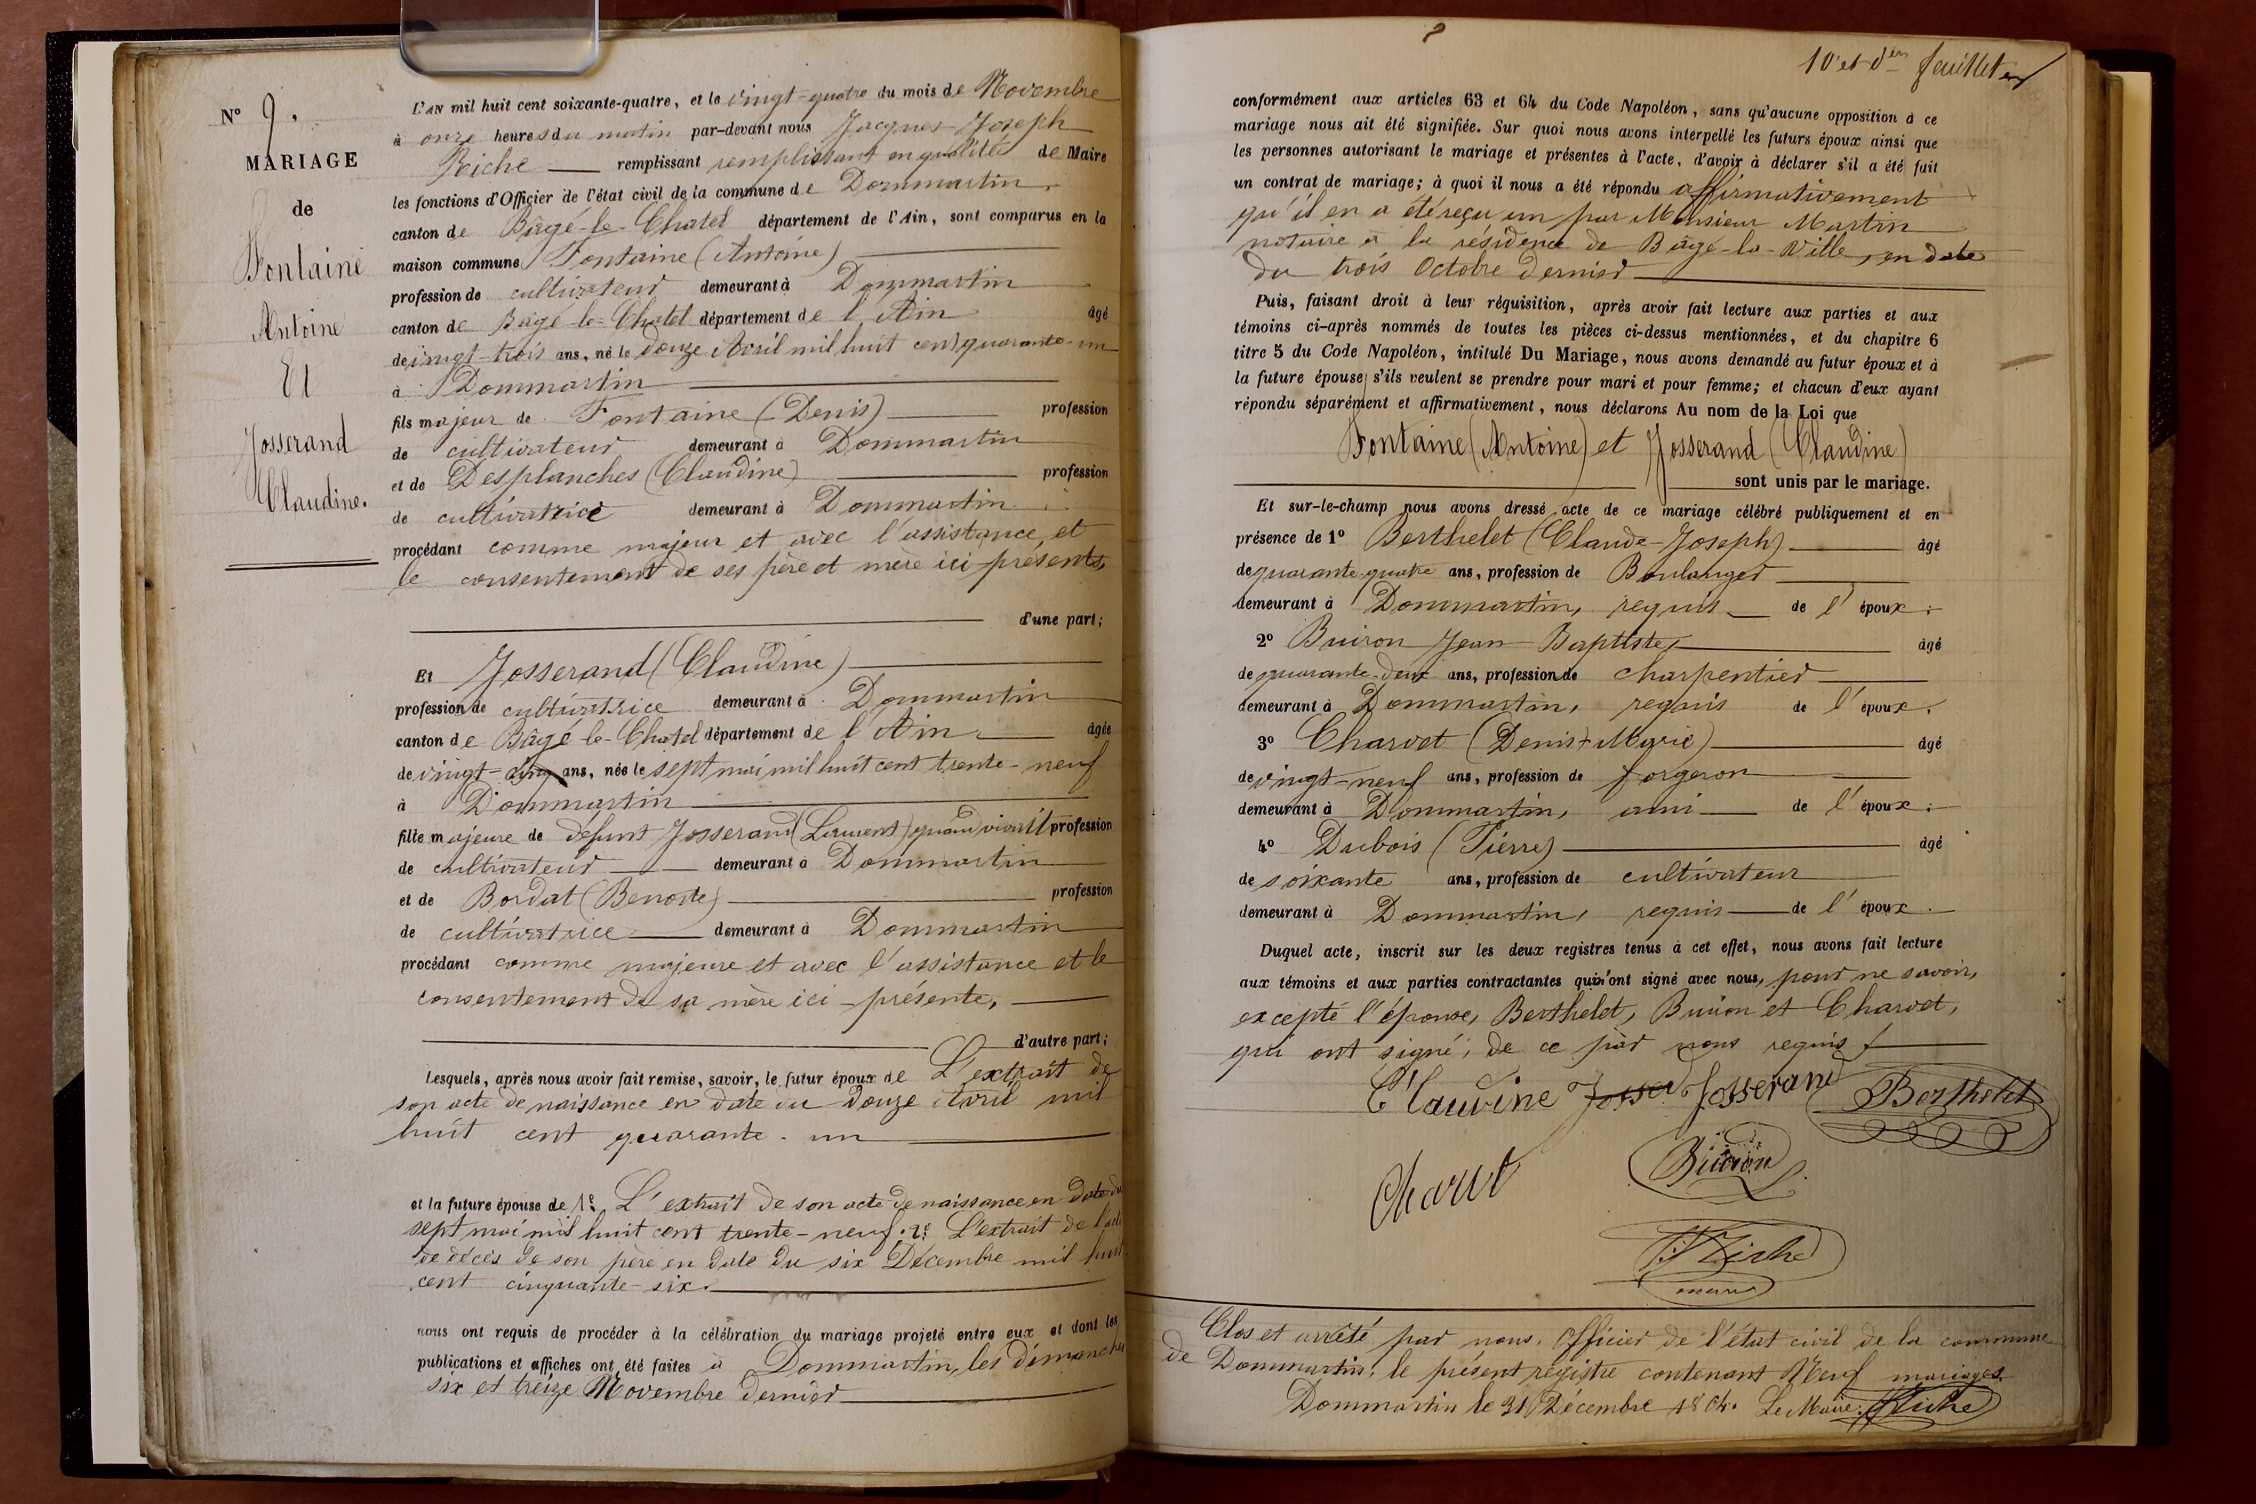 N° 9.
MARIAGE
de
Fontaine
Antoine
Et
Josserand
Claudine.
L'AN mil huit cent soixante-quatre, et le vingt-quatre du mois de Novembre
à onze heures du matin par-devant nous Jacques Joseph
Riche remplissant remplissant en qualité de Maire
les fonctions d'Officier de l'état civil de la commune de Dommartin.
canton de Bâgé-le-Chatel département de l'Ain, sont comparus en la
maison commune Fontaine (Antoine)
profession de cultivateur demeurant à Dommartin
canton de Bâgé-le-Chatel département de l'Ain âgé
de vingt-trois ans, né le douze Avril mil huit cent quarante-un
à Dommartin
fils majeur de Fontaine (Denis) profession
de cultivateur demeurant à Dommartin
et de Desplanches (Claudine) profession
de cultivatrice demeurant à Dommartin
procédant comme majeur et avec l'assistance et
le consentement de ses père et mère ici présents,
d'une part;
Et Josserand (Claudine)
profession de cultivatrice demeurant à Dommartin
canton de Bâgé-le-Chatel département de l'Ain âgée
de vingt-cinq ans, née le sept mai mil huit cent trente-neuf
à Dommartin
fille majeure de défunt Josserand (Laurent) quand vivait profession
de cultivateur demeurant à Dommartin
et de Bordat (Benoite) profession
de cultivatrice demeurant à Dommartin
procédant comme majeure et avec l'assistance et le
consentement de sa mère ici-présente,
d'autre part;
Lesquels, après nous avoir fait remise, savoir, le futur époux de L'extrait de
son acte de naissance en date du douze Avril mil
huit cent quarante-un
et la future épouse de 1° L'extrait de son acte de naissance en date du
sept mai mil huit cent trente-neuf. 2° L'extrait de l'acte
de décès de son père en date du six Décembre mil huit
cent cinquante-six.
nous ont requis de procéder à la célébration du mariage projeté entre eux et dont les
publications et affiches ont été faites à Dommartin, les dimanches
six et treize Novembre dernier
10e et der feuillet
conformément aux articles 63 et 64 du Code Napoléon, sans qu'aucune opposition à ce
mariage nous ait été signifiée. Sur quoi nous avons interpellé les futurs époux ainsi que
les personnes autorisant le mariage et présentes à l'acte, d'avoir à déclarer s'il a été fait
un contrat de mariage; à quoi il nous a été répondu affirmativement
qu'il en a été reçu un par Monsieur Martin
notaire à la résidence de Bâgé-la-Ville, en date
du trois Octobre dernier
Puis, faisant droit à leur réquisition, après avoir fait lecture aux parties et aux
témoins ci-après nommés de toutes les pièces ci-dessus mentionnées, et du chapitre 6
titre 5 du Code Napoléon, intitulé Du Mariage, nous avons demandé au futur époux et à
la future épouse s'ils veulent se prendre pour mari et pour femme; et chacun d'eux ayant
répondu séparément et affirmativement, nous déclarons Au nom de la Loi que
Fontaine (Antoine) et Josserand (Claudine)
sont unis par le mariage.
Et sur-le-champ nous avons dressé acte de ce mariage célébré publiquement et en
présence de 1° Berthelet (Claude-Joseph) âgé
de quarante-quatre ans, profession de Boulanger
demeurant à Dommartin, requis de l'époux;
2° Buiron Jean-Baptiste, âgé
de quarante-deux ans, profession de charpentier
demeurant à Dommartin, requis de l'époux.
3° Charvet (Denis-Marie) âgé
de vingt-neuf ans, profession de forgeron
demeurant à Dommartin, ami de l'époux;
4° Dubois (Pierre) âgé
de soixante ans, profession de cultivateur
demeurant à Dommartin, requis de l'époux.
Duquel acte, inscrit sur les deux registres tenus à cet effet, nous avons fait lecture
aux témoins et aux parties contractantes qui n'ont signé avec nous, pour ne savoir,
excepté l'épouse, Berthelet, Buiron et Charvet,
qui ont signé, de ce par nous requis
Claudine Josser Josserand Berthelet
Buiron
Charvet
Riche
maire
Clos et arrêté par nous, Officier de l'état civil de la commune
de Dommartin, le présent registre contenant Neuf mariages.
Dommartin le 31 Décembre 1864. Le Maire. Riche